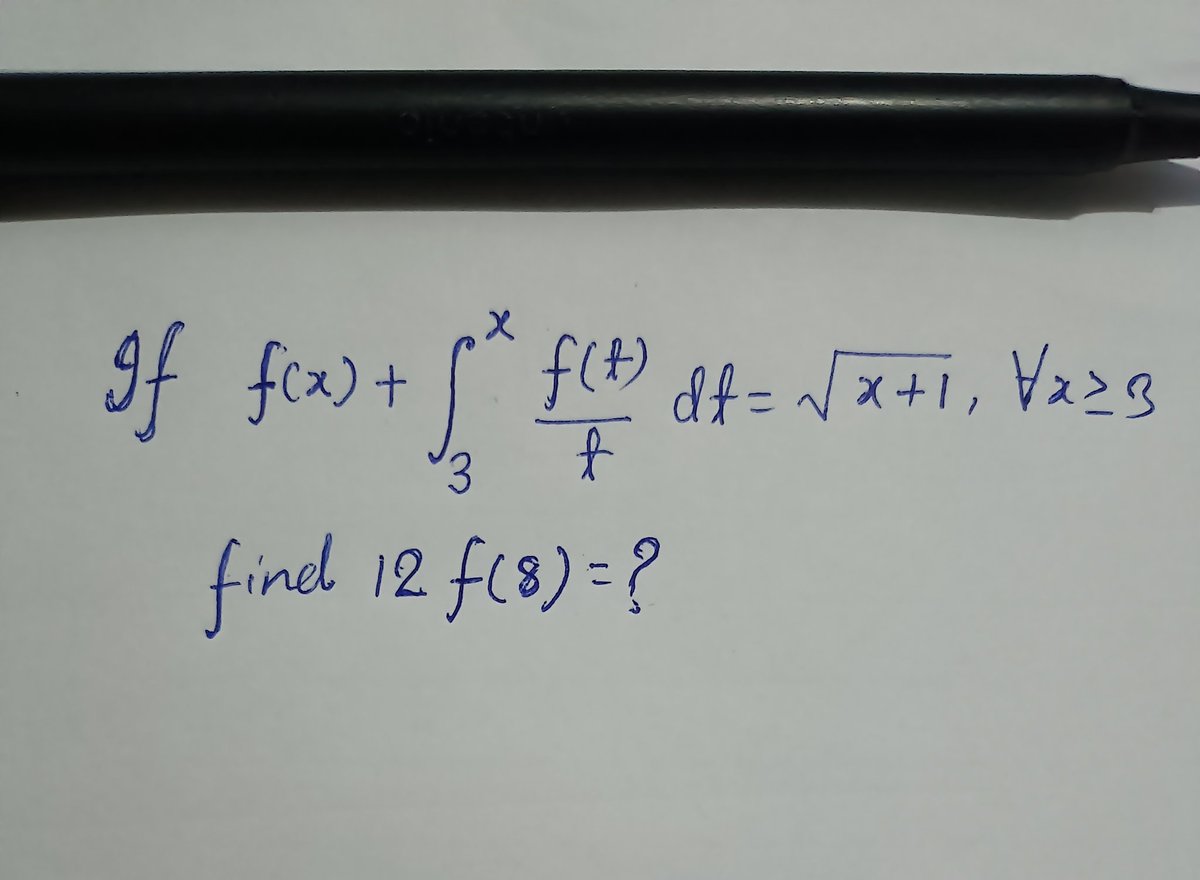 If f(x) + ∫₃ˣ f(t)/t dt = √(x+1), ∀x≥3
find 12 f(8) = ?